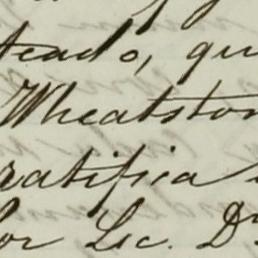 teado, qu
Wheatston
ratifica
or Lic. D